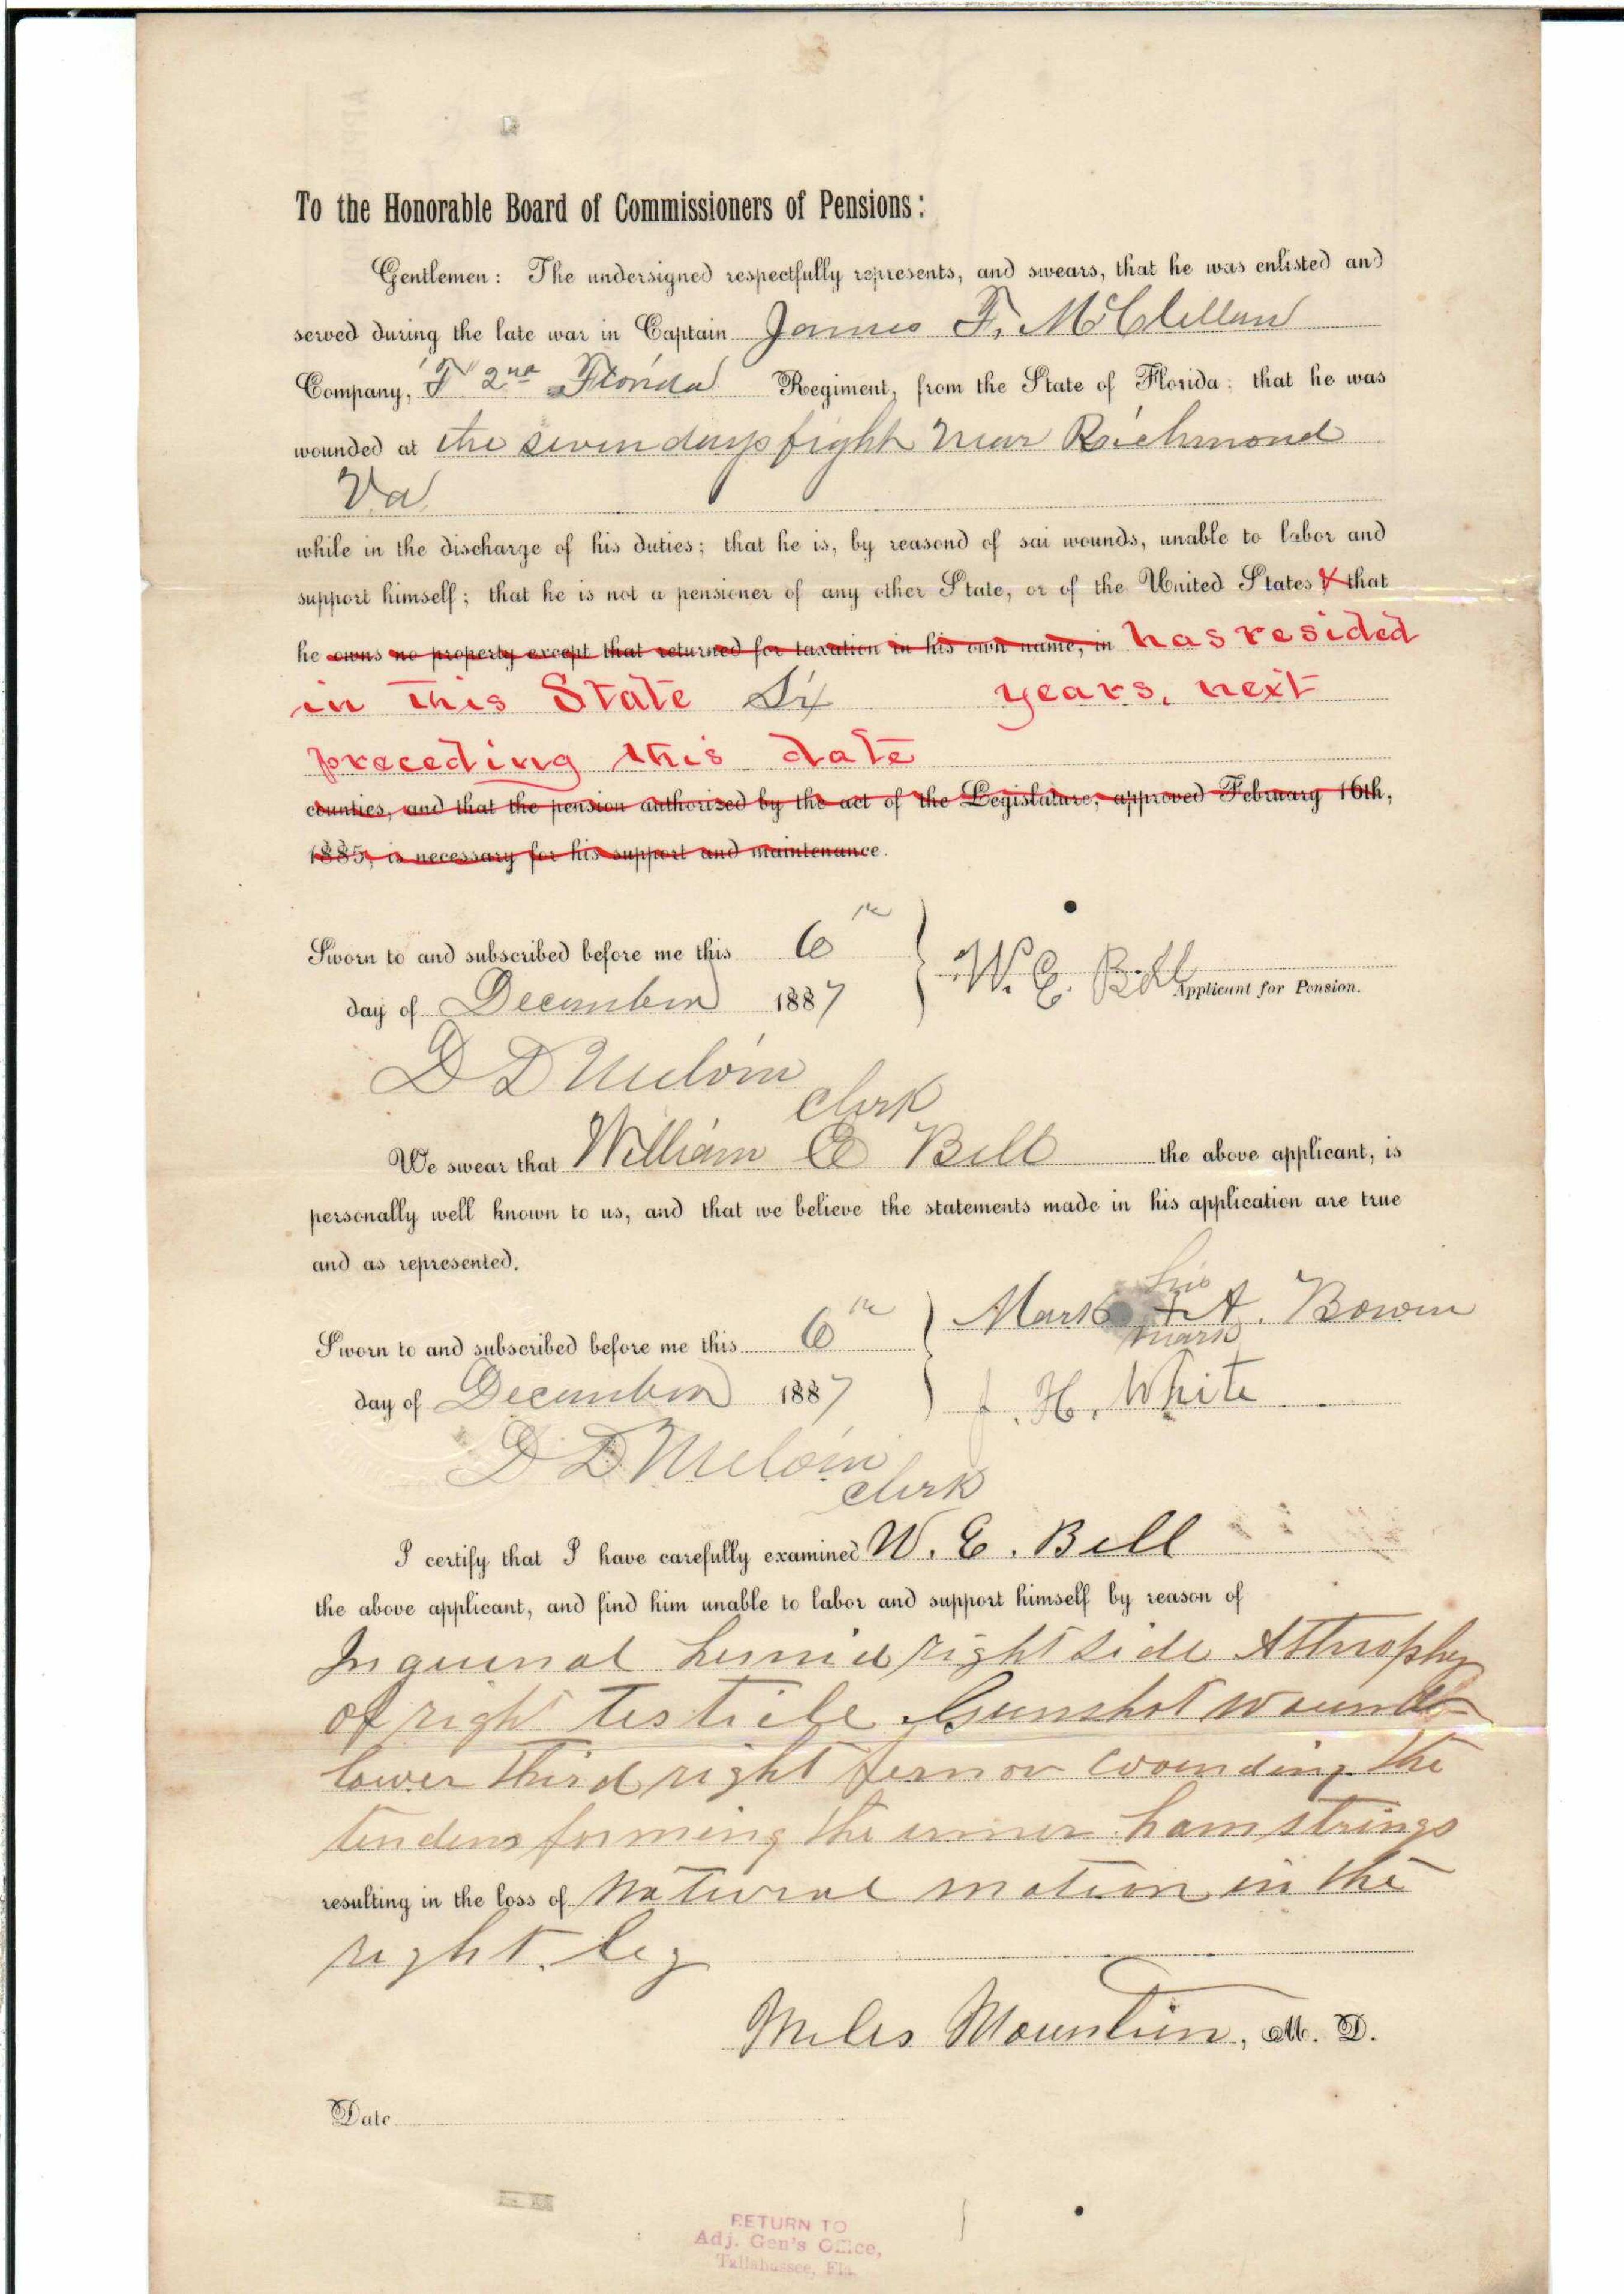 To the Honorable Board of Commissioners of Pensions:
Gentlemen: The undersigned respectfully represents, and swears, that he was enlisted and
served during the late war in Captain James F. McClellan
Company, "F" 2nd Florida Regiment, from the State of Florida; that he was
wounded at the seven days fight near Richmond
Va
while in the discharge of his duties; that he is, by reasond of sai wounds, unable to labor and
support himself; that he is not a pensioner of any other State, or of the United States & that
he owns no property except that returned for taxation in his own name, in has resided
in this State Six years, next
preceding this date
counties, and that the pension authorized by the act of the Legislature, approved February 16th,
1885, is necessary for his support and maintenance.
Sworn to and subscribed before me this 6th
day of December 1887
W. E. Bell
Applicant for Pension.
D D Melvin
Clerk
We swear that William E Bell the above applicant, is
personally well known to us, and that we believe the statements made in his application are true
and as represented.
his
Mark + A. Bowen
mark
Sworn to and subscribed before me this 6th
day of December 1887
J. H. White
D D Melvin
Clerk
I certify that I have carefully examined W. E. Bell
the above applicant, and find him unable to labor and support himself by reason of
Inguenal hernia right side Atthrophy
of right testicle Gunshot wound
lower third right femor wounding the
tendons forming the inner hamstrings
resulting in the loss of natural motion in the
right leg
Miles , M. D.
Date
RETURN TO
Adj. Gen's Office,
Tallahassee, Fla.